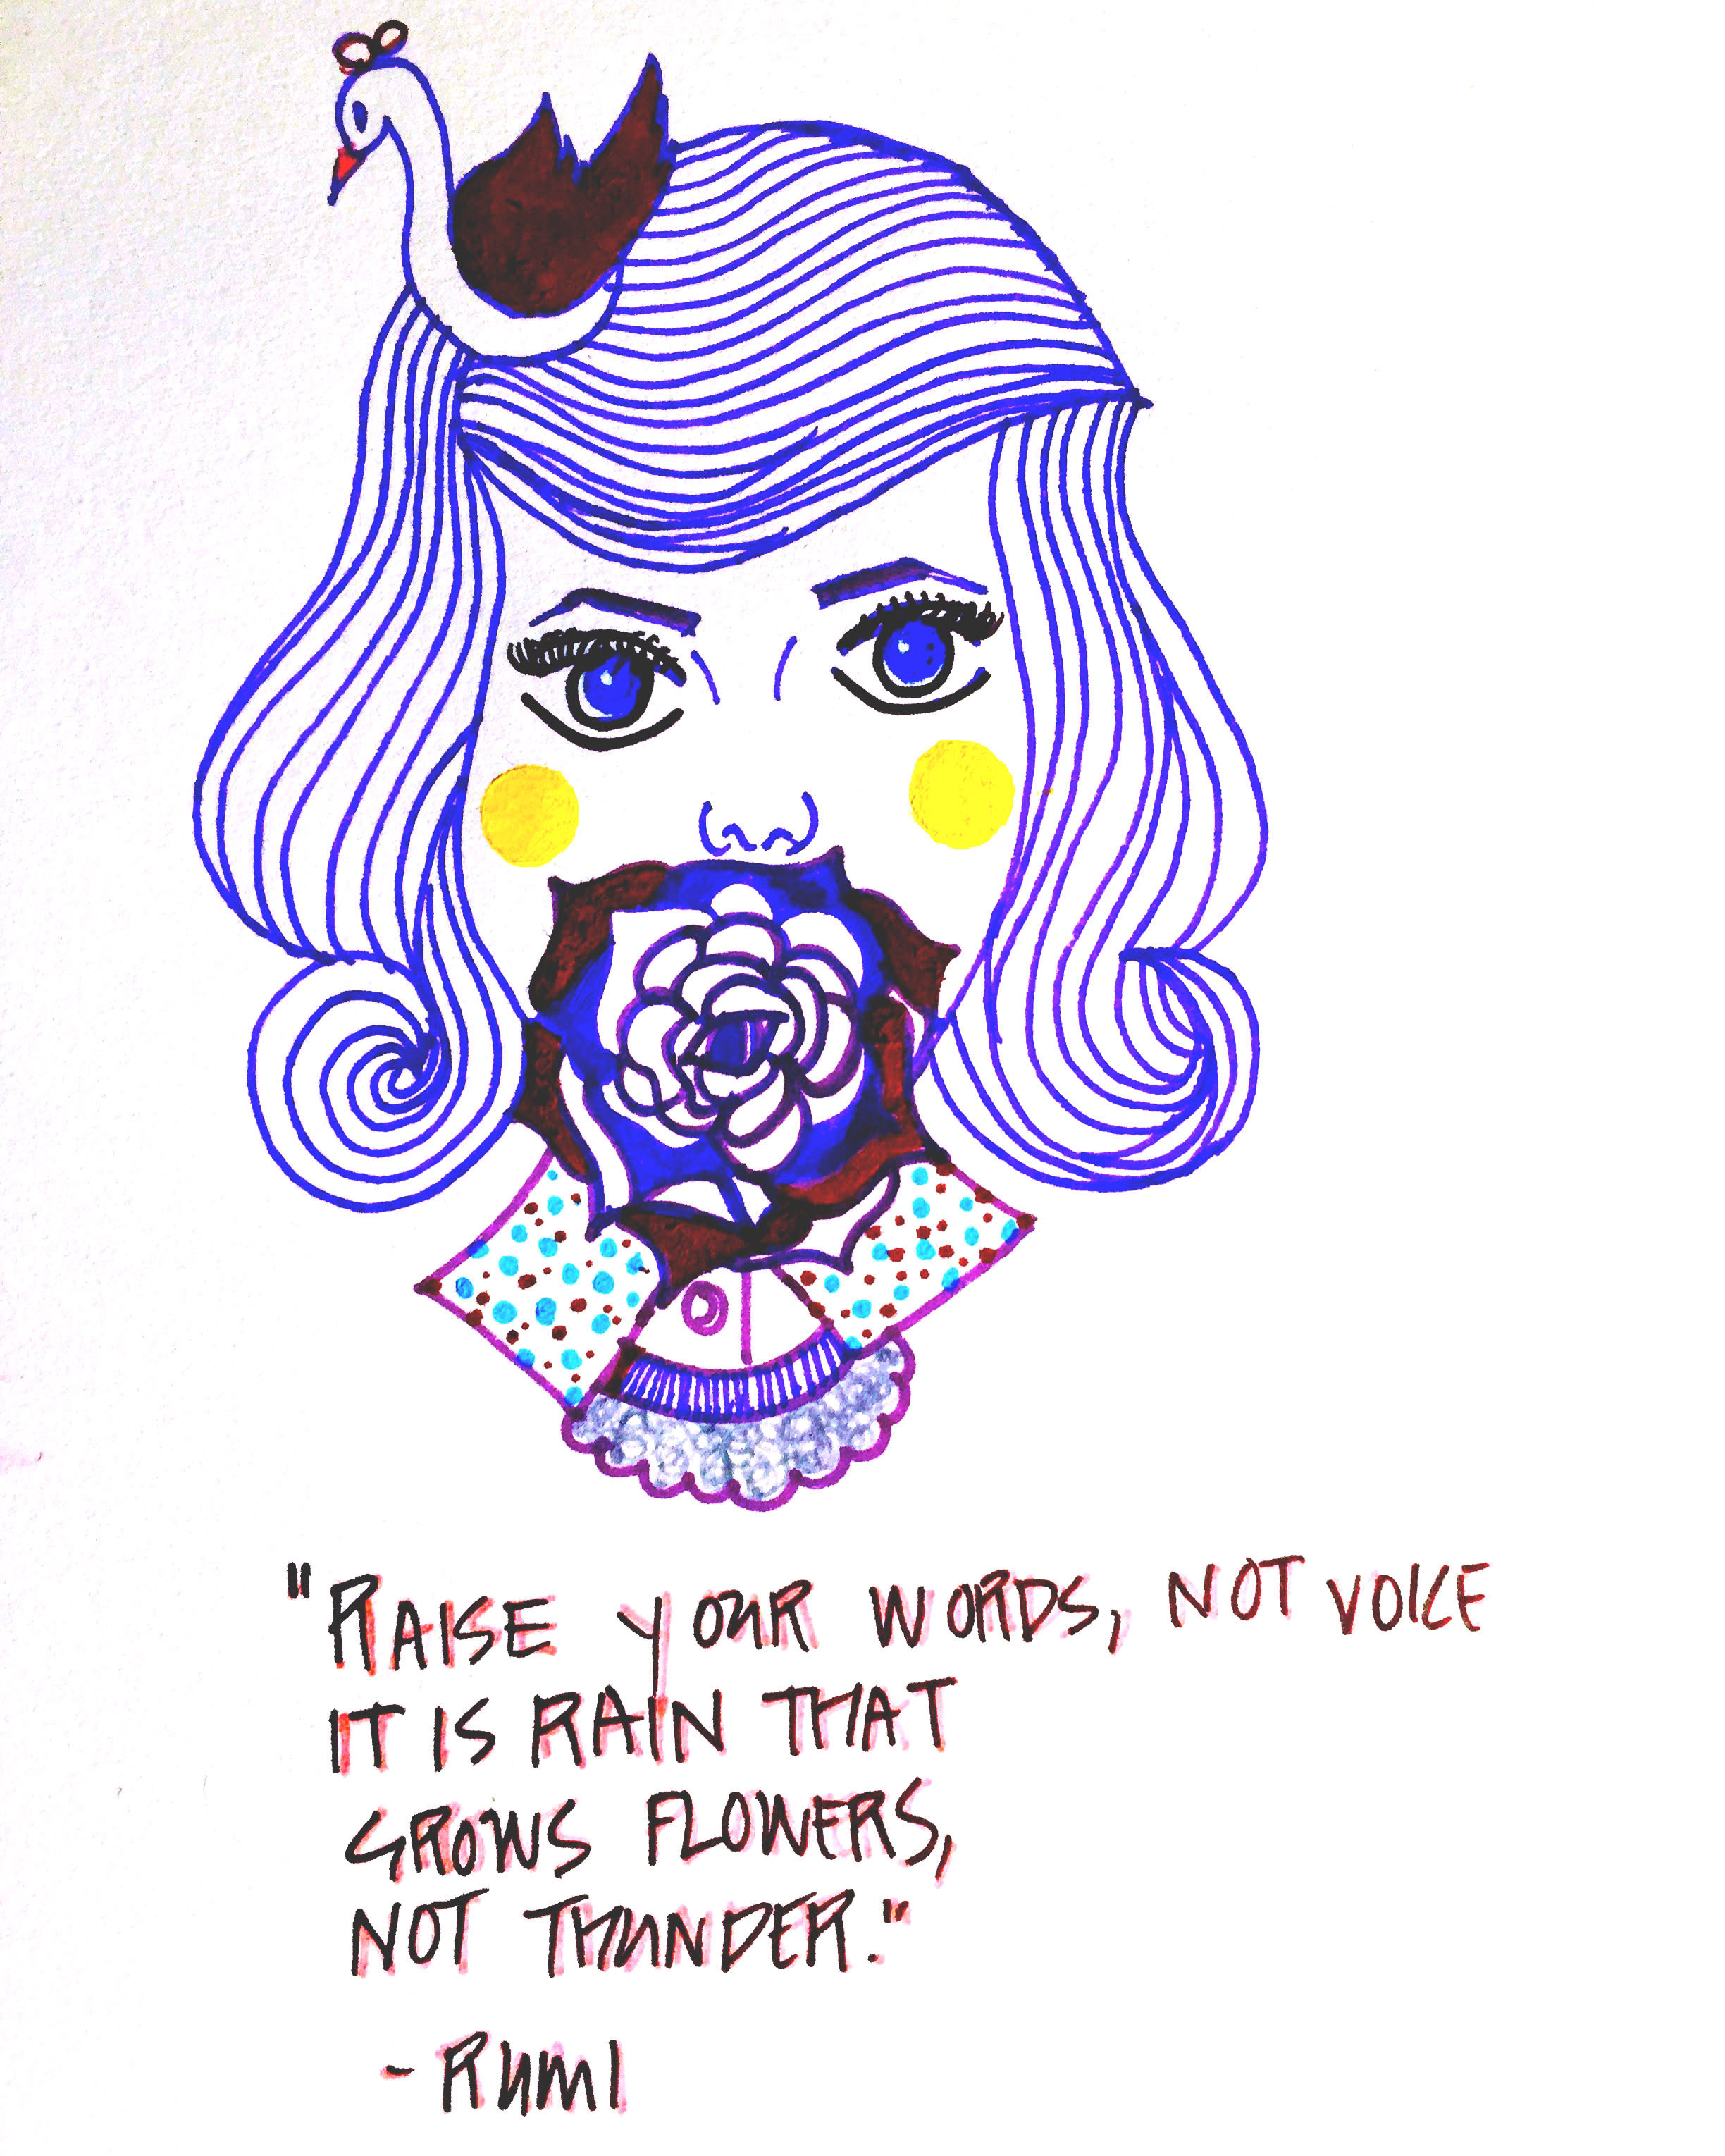 "RAISE YOUR WORDS, NOT VOICE
IT IS RAIN THAT
GROWS FLOWERS,
NOT THUNDER."
- RUMI